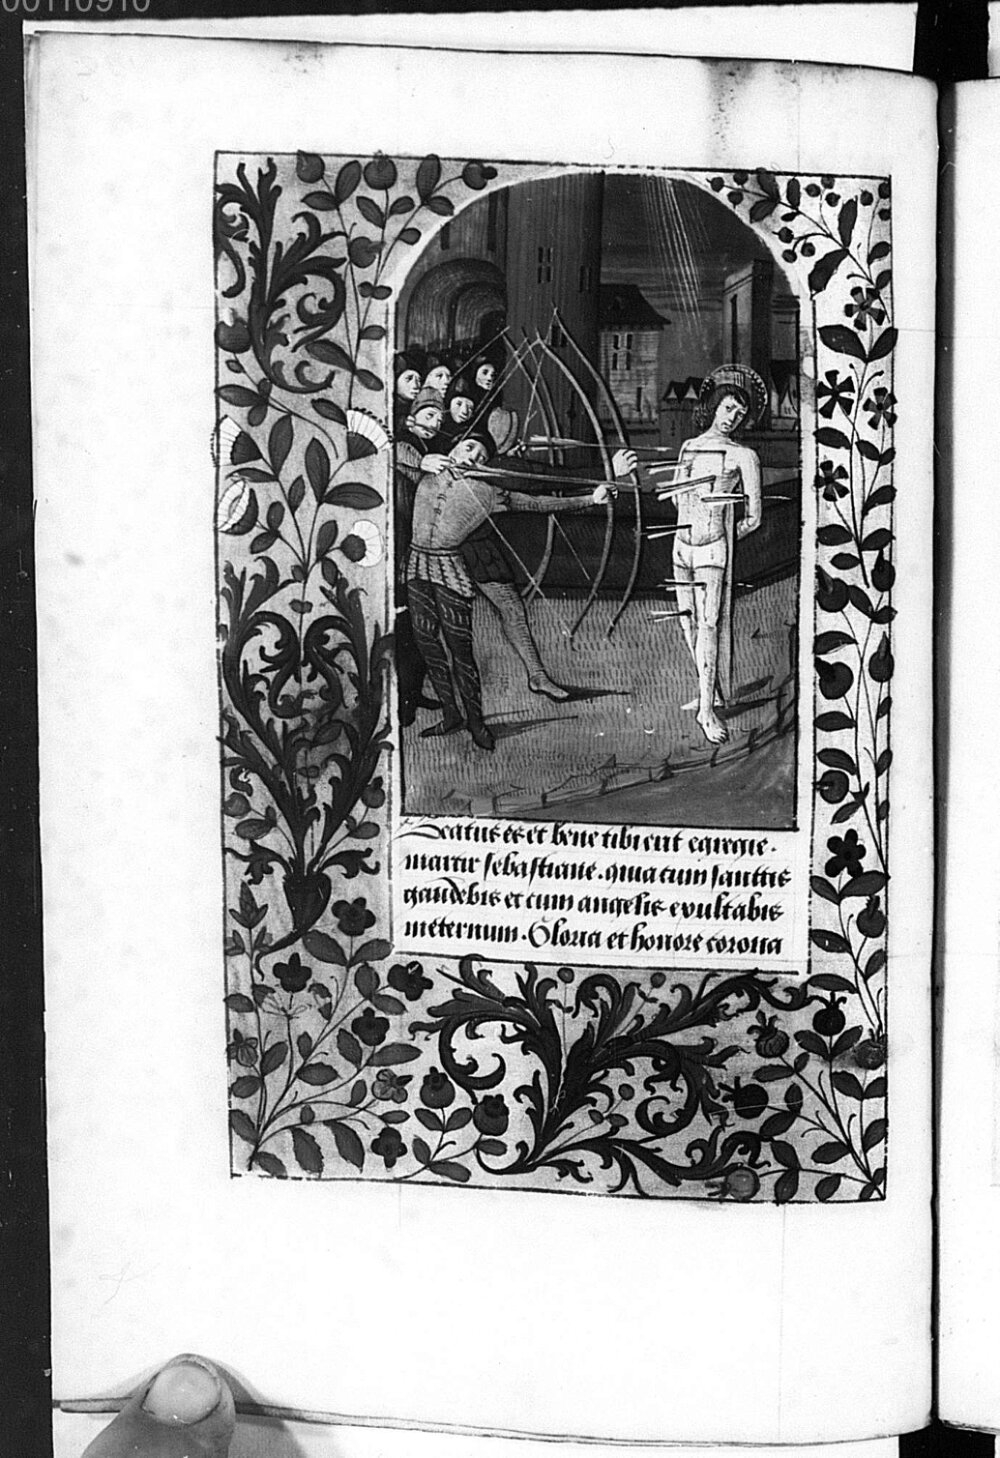 00110910
Beatus es et bene tibi erit egregie.
martir sebastiane. quia cum sanctis
gaudebis et cum angelis exultabis
meternum. Gloria et honore corona